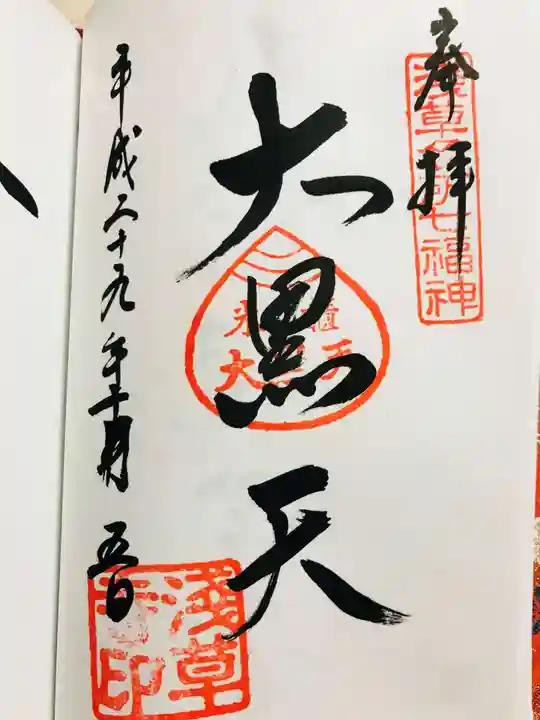 奉拝
浅草名所七福神
大黒天
米櫃
大黒天
平成二十九年十月五日
淺草寺印